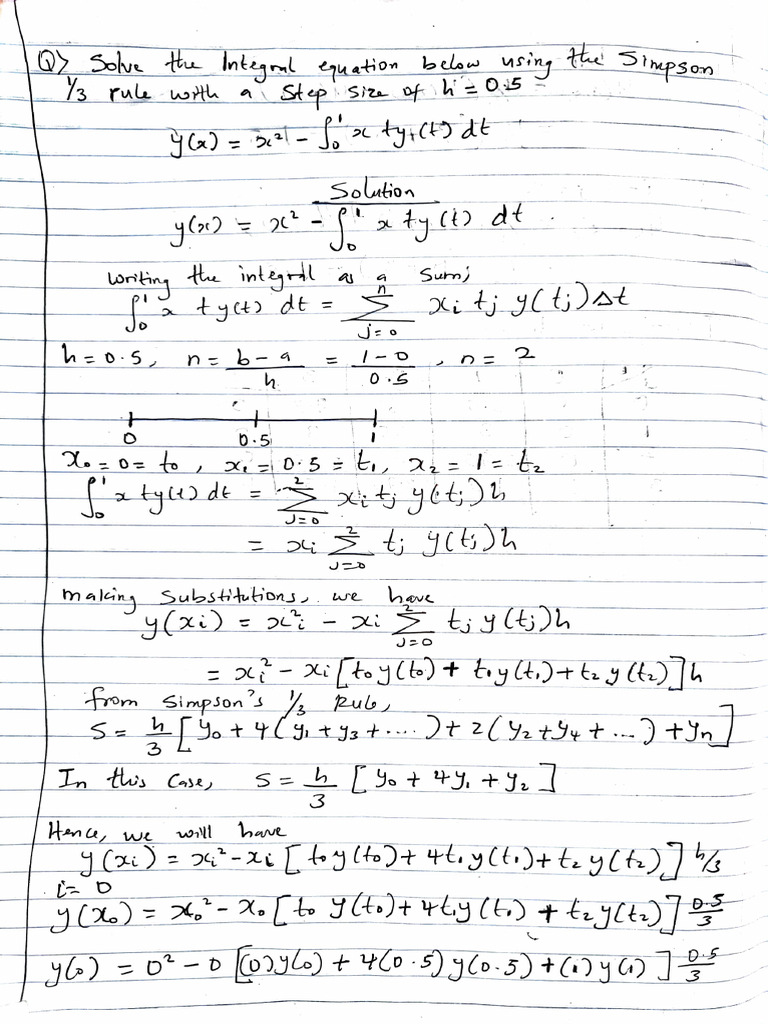 Q> Solve the Integral equation below using the Simpson
1/3 rule with a step size of h = 0.5
y(x) = x² - ∫₀¹ x ty(t) dt
Solution
y(x) = x² - ∫₀¹ x ty(t) dt.
Writing the integral as a sum;
∫₀¹ x ty(t) dt = Σⁿⱼ₌₀ xᵢ tⱼ y(tⱼ)Δt
h = 0.5, n = (b-a)/h = (1-0)/0.5, n = 2
0 0.5 1
x₀ = 0 = t₀, x₁ = 0.5 = t₁, x₂ = 1 = t₂
∫₀¹ x ty(t) dt = Σ²ⱼ₌₀ xᵢ tⱼ y(tⱼ)h
= xᵢ Σ²ⱼ₌₀ tⱼ y(tⱼ)h
making substitutions, we have
y(xᵢ) = x²ᵢ - xᵢ Σ²ⱼ₌₀ tⱼ y(tⱼ)h
= xᵢ² - xᵢ[t₀y(t₀) + t₁y(t₁) + t₂y(t₂)]h
from Simpson's 1/3 Rule,
S = h/3 [y₀ + 4(y₁ + y₃ + ....) + 2(y₂ + y₄ + ...) + yₙ]
In this case, S = h/3 [y₀ + 4y₁ + y₂]
Hence, we will have
y(xᵢ) = xᵢ² - xᵢ [t₀y(t₀) + 4t₁y(t₁) + t₂y(t₂)] h/3
i = 0
y(x₀) = x₀² - x₀ [t₀ y(t₀) + 4t₁y(t₁) + t₂y(t₂)] 0.5/3
y(0) = 0² - 0 [(0)y(0) + 4(0.5) y(0.5) + (1) y(1)] 0.5/3